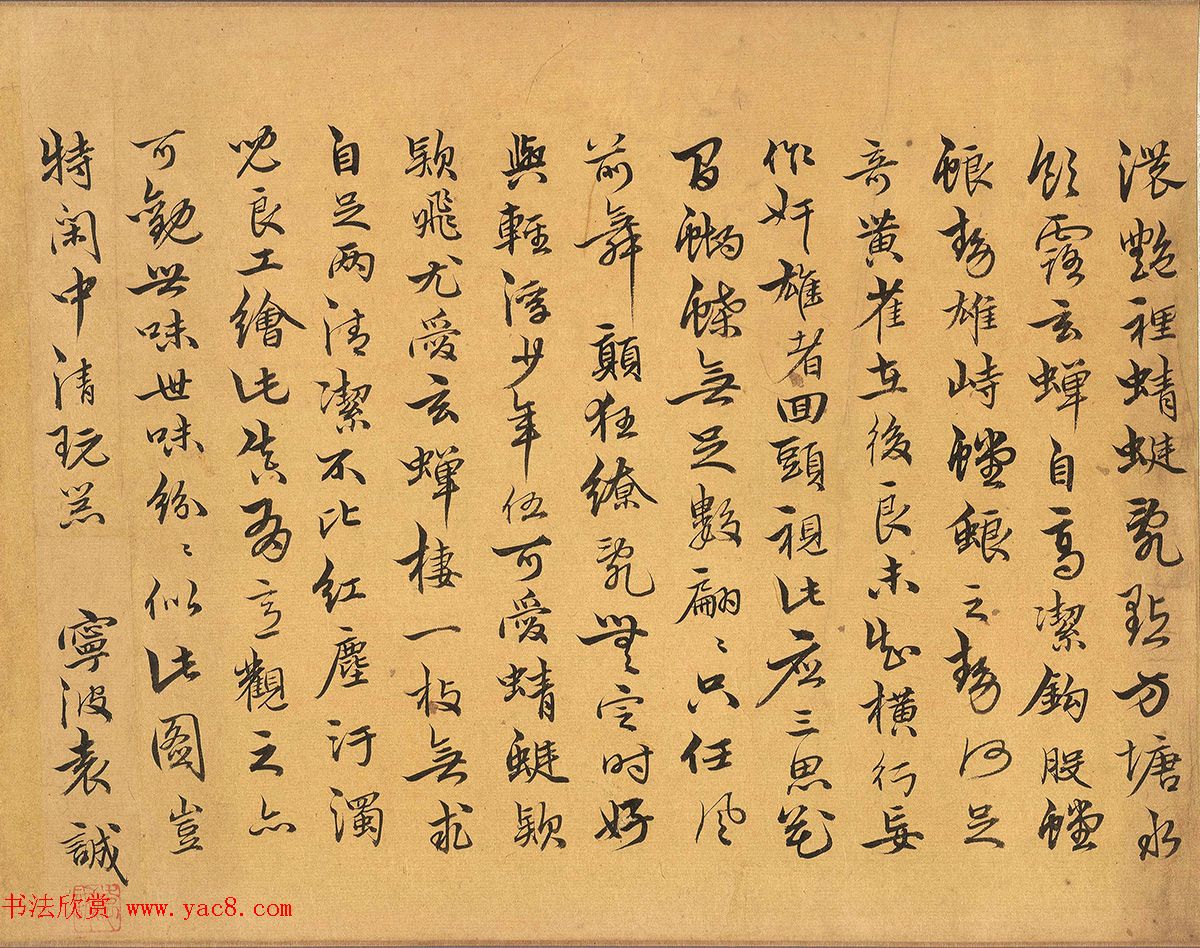 濃艷裡蜻蜓亂點方塘水
飲露玄蟬自高潔鈎股螳
蜋勢雄峙螳蜋之勢何足
奇黃雀在後良未知橫行妄
作奸雄者回頭視此應三思花
間蝴蝶無足數翩〻只任風
前舞顛狂繚亂無定時好
與輕浮少年伍可愛蜻蜓款
款飛尤愛玄蟬棲一枝無求
自足兩清潔不比紅塵汙濁
兒良工繪此真有意觀之亦
可勸世味世味紛〻似此圖豈
特閑中清玩器
寧波袁誠
书法欣赏 www.yac8.com